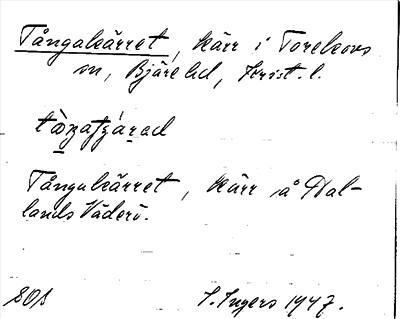 Tångakärret, kärr i Torekovs
sn, Bjäre hd, Krist. l.
Tångakärret, kärr å Hal-
lands Väderö.
SOS I. Ingers 1947.